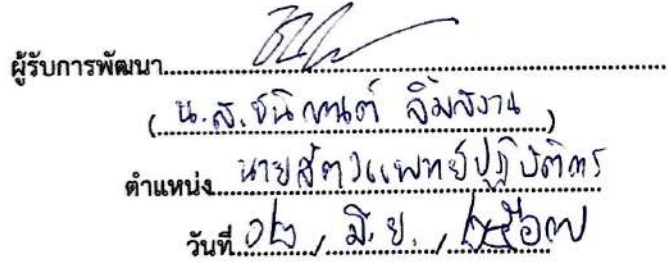 ผู้รับการพัฒนา
( น.ส. ชนิกานต์ ลิ้มสงาน )
ตำแหน่ง นายสัตวแพทย์ปฏิบัติการ
วันที่ ๐๒ / มิ.ย. / ๒๕๖๗